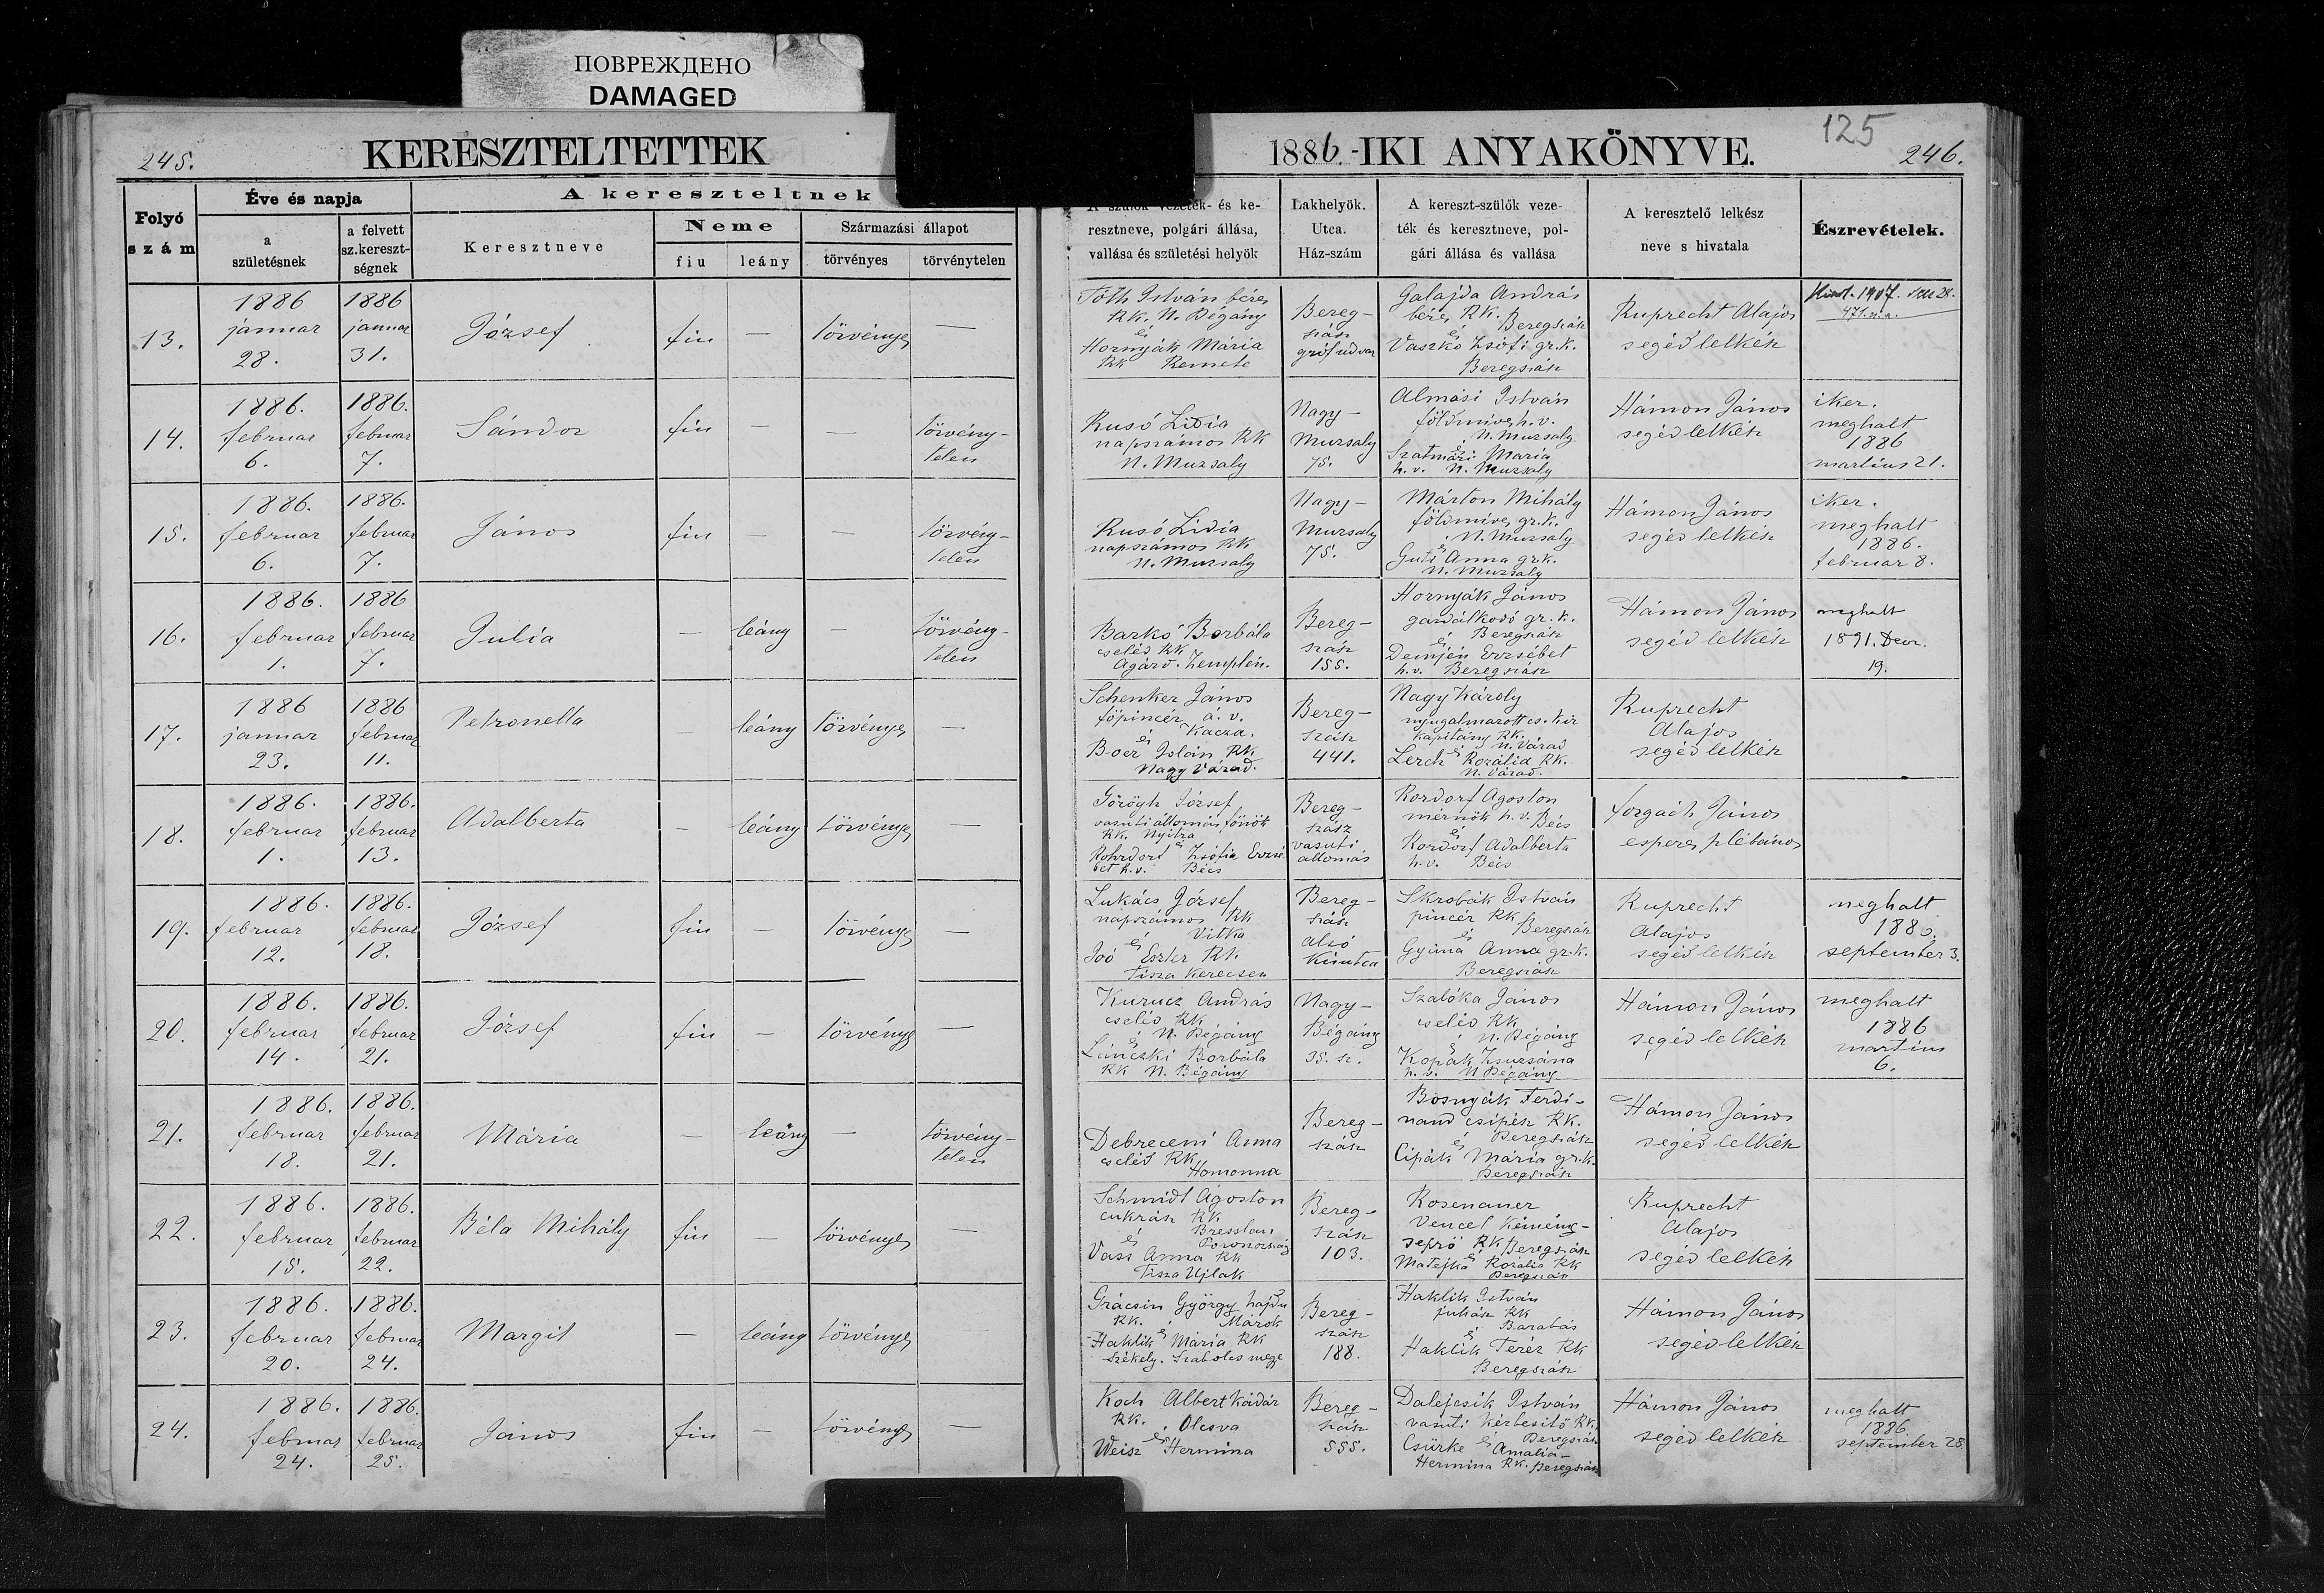 ПОВРЕЖДЕНО
DAMAGED
245.
KERESZTELTETTEK
1886.-IKI ANYAKÖNYVE.
125
246.
Folyó szám
Éve és napja
a születésnek
a felvett sz.kereszt-ségnek
A kereszteltnek
Keresztneve
Neme
fiu
leány
Származási állapot
törvényes
törvénytelen
A szülők vezeték- és ke-
resztneve, polgári állása,
vallása és születési helyök
Lakhelyök.
Utca.
Ház-szám
A kereszt-szülők veze-
ték és keresztneve, pol-
gári állása és vallása
A keresztelő lelkész
neve s hivatala
Észrevételek.
13.
1886 januar 28.
1886 januar 31.
József
fiu
—
törvényes
—
Tóth István béres
RK. N. Bégány
és
Hornyák Mária
RK Remete
Bereg-
szász
gróf udvar
Galajda András
béres RK. Beregszász
és
Vaszkó Zsófi gr.k.
Beregszász
Ruprecht Alajos
segéd lelkész
14.
1886. februar 6.
1886. februar 7.
Sándor
fiu
—
—
törvény-
telen
Rusó Lidia
napszámos RK
N. Muzsaly
Nagy-
Muzsaly
75.
Almási István
földmives h.v.
N. Muzsaly
és
Szatmári Maria
h.v. N. Muzsaly
Hámon János
segéd lelkész
iker.
meghalt
1886
martius 21.
15.
1886. februar 6.
1886. februar 7.
János
fiu
—
—
törvény-
telen
Rusó Lidia
napszámos RK
N. Muzsaly
Nagy-
Muzsaly
75.
Márton Mihály
földmives gr.k.
N. Muzsaly
és
Guti Anna gr.k.
N. Muzsaly
Hámon János
segéd lelkész
iker.
meghalt
1886.
februar 8.
16.
1886. februar 1.
1886 februar 7.
Julia
—
leány
—
törvény-
telen
Barkó Borbála
cseléd RK
Agárd. Zemplén.
Bereg-
szász
155.
Hornyák János
gazdálkodó gr.k.
Beregszász
és
Demjén Erzsébet
h.v. Beregszász
Hámon János
segéd lelkész
meghalt
1891. Decr.
19.
17.
1886 januar 23.
1886 februar 11.
Petronella
—
leány
törvényes
—
Schenker János
főpincér á.v.
Kacza.
és
Boér Iolán RK
Nagy Várad.
Bereg-
szász
441.
Nagy Károly
nyugalmazott cs. kir
kapitány RK.
N. Várad
és
Lerch Rozália RK.
N. Várad.
Ruprecht
Alajos
segéd lelkész
18.
1886. februar 1.
1886. februar 13.
Adalberta
—
leány
törvényes
—
Görögh József
vasuti állomás főnök
RK. Nyitra
és
Rohrdorf Zsófia Erzsé
bet h.v. Bécs
Bereg-
szász
vasuti
állomás
Rordorf Agoston
mérnök h.v. Bécs
és
Rordorf Adalberta
h.v. Bécs
Forgách János
esperes plébános
19.
1886. februar 12.
1886. februar 18.
József
fiu
—
törvényes
—
Lukács József
napszámos RK
Vitka
és
Joó Eszter RK
Tisza Kerecsen
Bereg-
szász
alsó
Kisutca
Skrobák István
pincér RK
Beregszász
és
Gyima Anna gr.k.
Beregszász
Ruprecht
Alajos
segéd lelkész
meghalt
1886.
september 3.
20.
1886. februar 14.
1886. februar 21.
József
fiu
—
törvényes
—
Kurucz András
cseléd RK
N. Bégány
és
Lánczki Borbála
RK N. Bégány
Nagy-
Bégány
35. sz.
Szalóka János
cseléd RK
N. Bégány
és
Kopák Zsuzsána
h.v. N Bégány
Hámon János
segéd lelkész
meghalt
1886
martius
6.
21.
1886. februar 18.
1886. februar 21.
Mária
—
leány
—
törvény-
telen
Debreceni Anna
cseléd RK
Homonna
Bereg-
szász
Bosnyák Ferdi-
nand csipész RK.
Beregszász
és
Cipák Mária gr.k.
Beregszász
Hámon János
segéd lelkész
22.
1886. februar 15.
1886. februar 22.
Béla Mihály
fiu
—
törvényes
—
Schmidt Ágoston
cukrász RK
Bresslau
Poroszország
és
Vass Anna RK
Tisza Ujlak
Bereg-
szász
103.
Rosenauer
Vencel kémény-
seprő RK Beregszász
és
Matejka Rozália RK
Beregszász
Ruprecht
Alajos
segéd lelkész
23.
1886. februar 20.
1886. februar 24.
Margit
—
leány
törvényes
Grácsin György hajdu
RK. Márok
és
Haklik Mária RK
Székely. Szabolcs megye
Bereg-
szász
188.
Haklik István
juhász RK
Barabás
és
Haklik Teréz RK
Beregszász
Hámon János
segéd lelkész
24.
1886. februar 24.
1886. februar 25.
János
fiu
—
törvényes
—
Koch Albert kádár
RK. Olcsva
és
Weisz Hermina
Bereg-
szász
555.
Dalejcsik István
vasuti kézbesitő RK.
Beregszász
és
Csürke Amalia-
Hermina RK. Beregszász
Hámon János
segéd lelkész
meghalt
1886.
september 28.